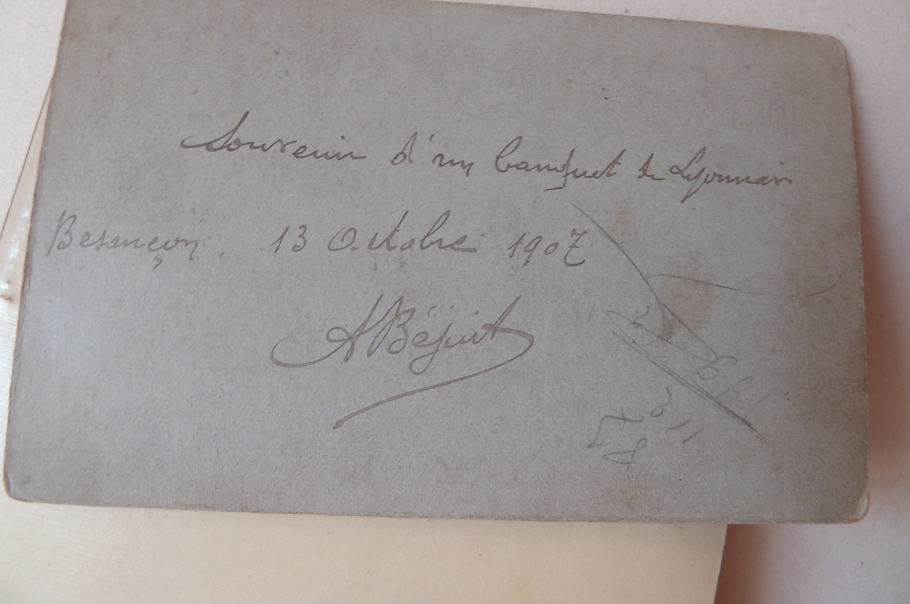 Souvenir d'un banquet de Lyonnais
Besançon. 13 Octobre 1907
ABéjuit